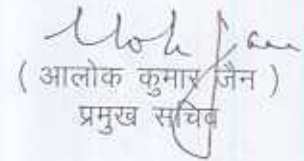 ( आलोक कुमार जैन )
प्रमुख सचिव